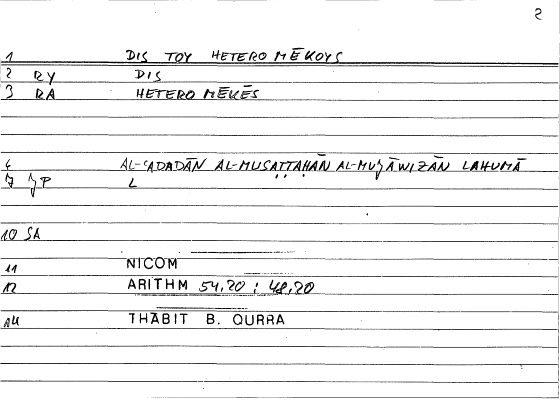 2
1 DIS TOY HETEROMĒKOYS
2 RY DIS
3 RA HETEROMĒKĒS
6 AL-ʿADADĀN AL-MUSAṬṬAḤĀN AL-MUǧĀWIZĀN LAHUMĀ
7 ǧP L
10 SA
11 NICOM
12 ARITHM 54,20 : 48,20
14 THABIT B. QURRA